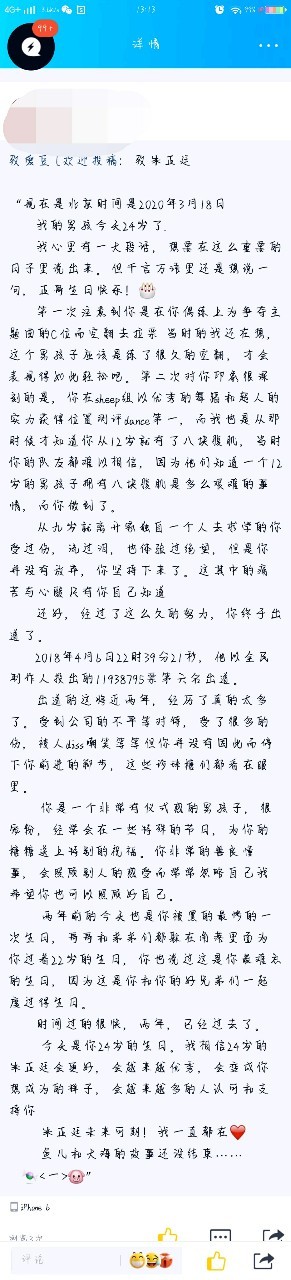 4G+
13:13
99+
详情
致爱豆(欢迎投稿: 致朱正廷
“现在是北京时间是2020年3月18日
我的男孩今天24岁了.
我心里有一大段话, 想要在这么重要的
日子里说出来. 但千言万语里还是想说一
句, 正哥生日快乐!
第一次注意到你是在你偶练上为争夺主
题曲的C位而空翻去拉票 当时的我还在想,
这个男孩子应该是练了很久的空翻, 才会
表现得如此轻松吧. 第二次对你印象很深
刻的是, 你在sheep组以优秀的舞蹈和超人的
实力获得位置测评dance第一, 而我也是从那
时候才知道你从12岁就有了八块腹肌, 当时
你的队友都难以相信, 因为他们知道一个12
岁的男孩子拥有八块腹肌是多么艰难的事
情, 而你做到了.
从九岁就离开家独自一个人去求学的你
受过伤, 流过泪, 也体验过绝望, 但是你
并没有放弃, 你坚持下来了. 这其中的痛
苦与心酸只有你自己知道
还好, 经过了这么久的努力, 你终于出
道了.
2018年4月6日22时39分21秒, 他以全民
制作人投出的11938795票第六名出道.
出道的这将近两年, 经历了真的太多
了. 受到公司的不平等对待, 受了很多的
伤, 被人diss嘲笑等等但你并没有因此而停
下你前进的脚步, 这些珍珠糖们都看在眼
里.
你是一个非常有仪式感的男孩子, 很
宠粉, 经常会在一些特殊的节日, 为你的
糖糖送上特别的祝福. 你非常的善良懂
事, 会照顾别人的感受而常常忽略自己我
希望你也可以照顾好自己.
两年前的今天也是你被罩的最惨的一
次生日, 哥哥和弟弟们都躲在角落里面为
你过着22岁的生日, 你也说过这是你最难忘
的生日, 因为这是你和你的好兄弟们一起
度过得生日.
时间过的很快, 两年, 已经过去了.
今天是你24岁的生日. 我相信24岁的
朱正廷会更好, 会越来越优秀, 会变成你
想成为的样子, 会越来越多的人认可和支
持你
朱正廷未来可期! 我一直都在
鱼儿和大海的故事还没结束……
<一>”
iPhone 6
评论